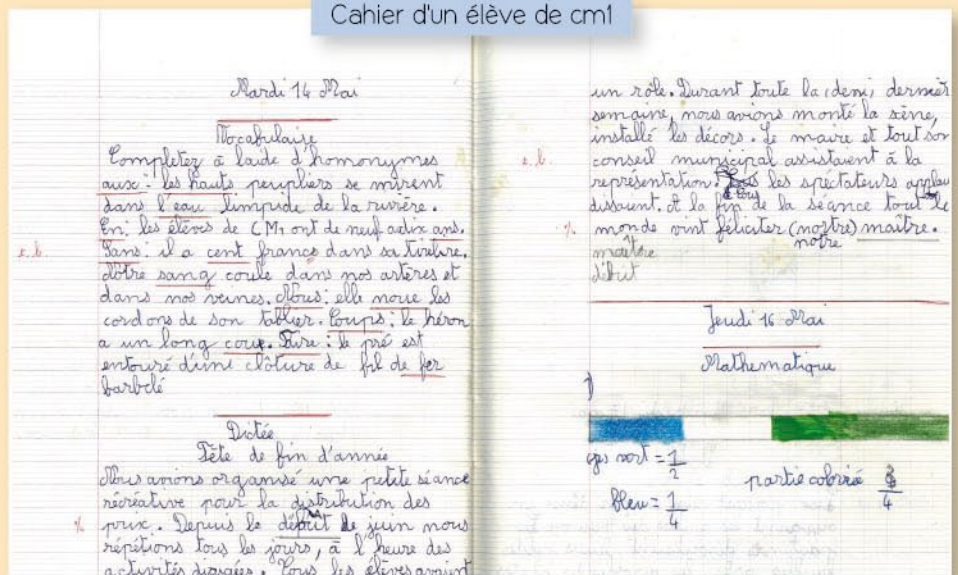 Cahier d'un élève de cm1
Mardi 14 Mai
Vocabulaire
Completez à laide d'homonymes
aux : les hauts peupliers se mirent
dans l'eau limpide de la rivière.
En : les élèves de CM1 ont de neuf adix ans.
Sans : il a cent francs dans sa tirelire.
Nôtre sang coule dans nos artères et
dans nos veines. Nous : elle noue les
cordons de son tablier. Coups : le héron
a un long cou. Faire : le pré est
entouré d'une clôture de fil de fer
barbelé
Dictée
Fête de fin d'année
Nous avions organisé une petite séance
récréative pour la distribution des
prix. Depuis le début de juin nous
répétions tous les jours, à l'heure des
activités dirigées. Tous les élèves avaient
un rôle. Durant toute la (demi) dernièr
semaine, nous avions monté la sène,
installé les décors. Le maire et tout son
conseil municipal assistaient à la
représentation. les spéctateurs applau
dissaient. A la fin de la séance tout le
monde vint féliciter (noftre) maître.
notre
maître
début
Jeudi 16 Mai
Mathematique
1)
vert = 1/2
bleu = 1/4
partie coloriée 3/4